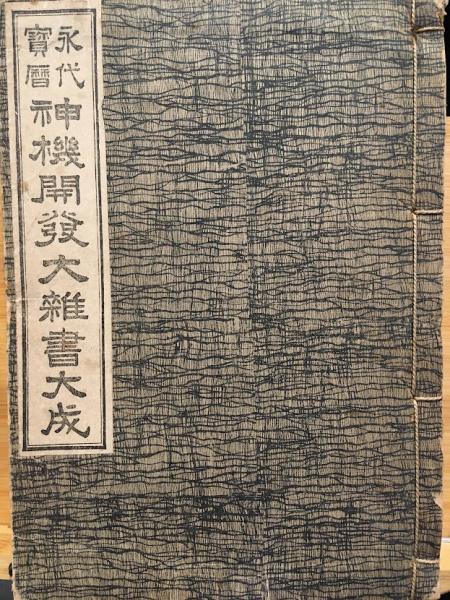 永代
寳暦
神機開發大雜書大成